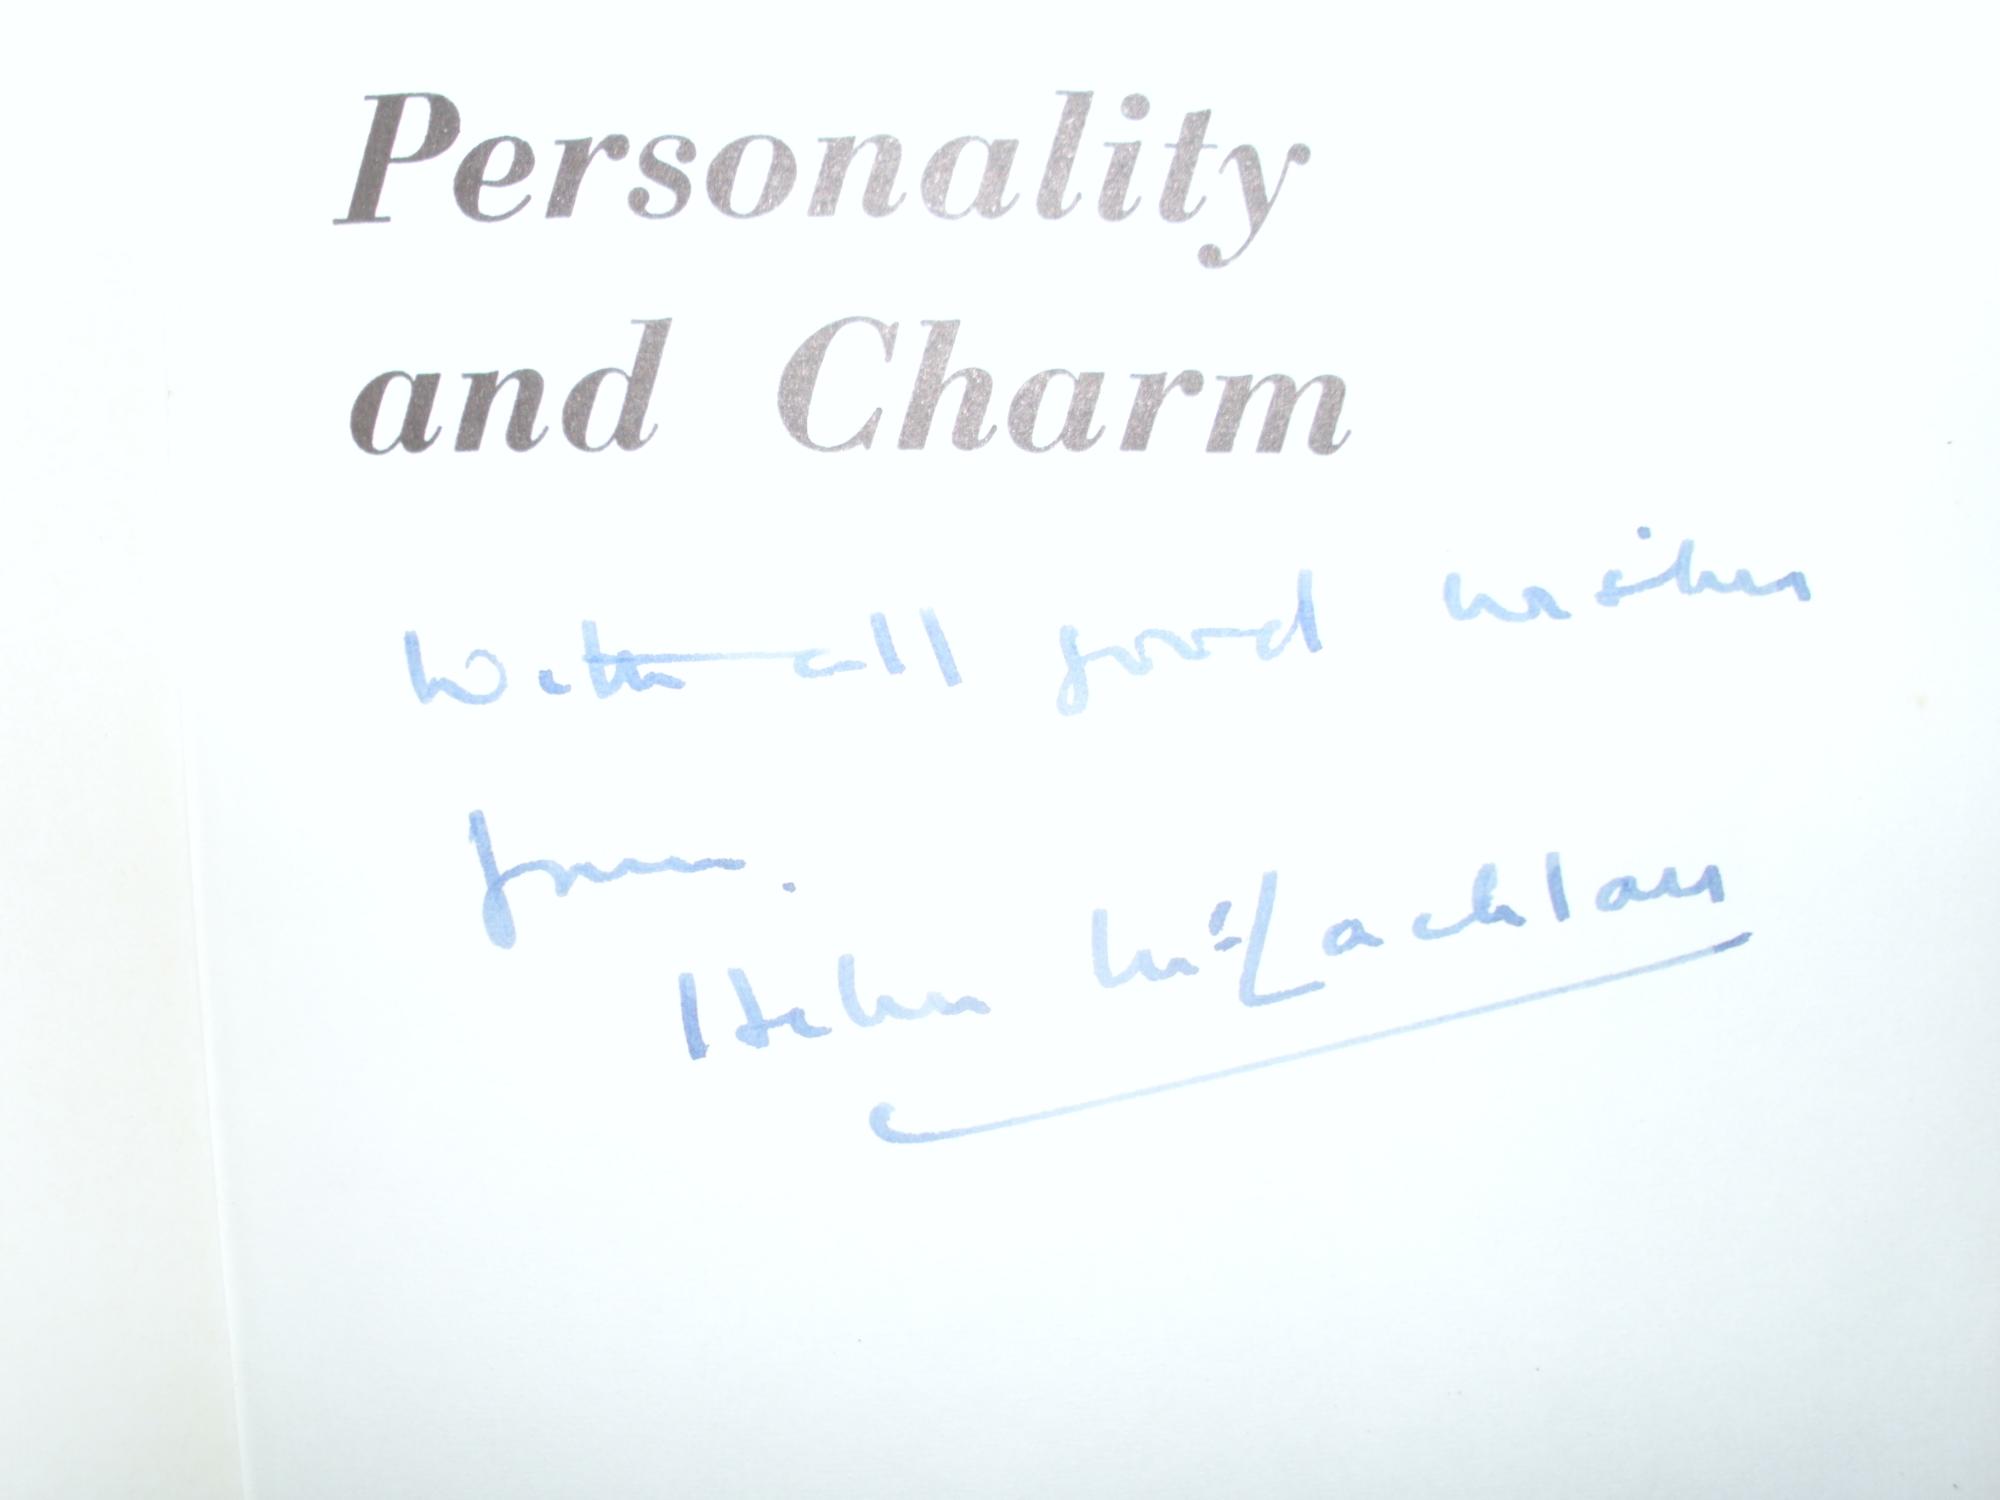 Personality
and Charm
With all good wishes
from.
Helen McLachlan